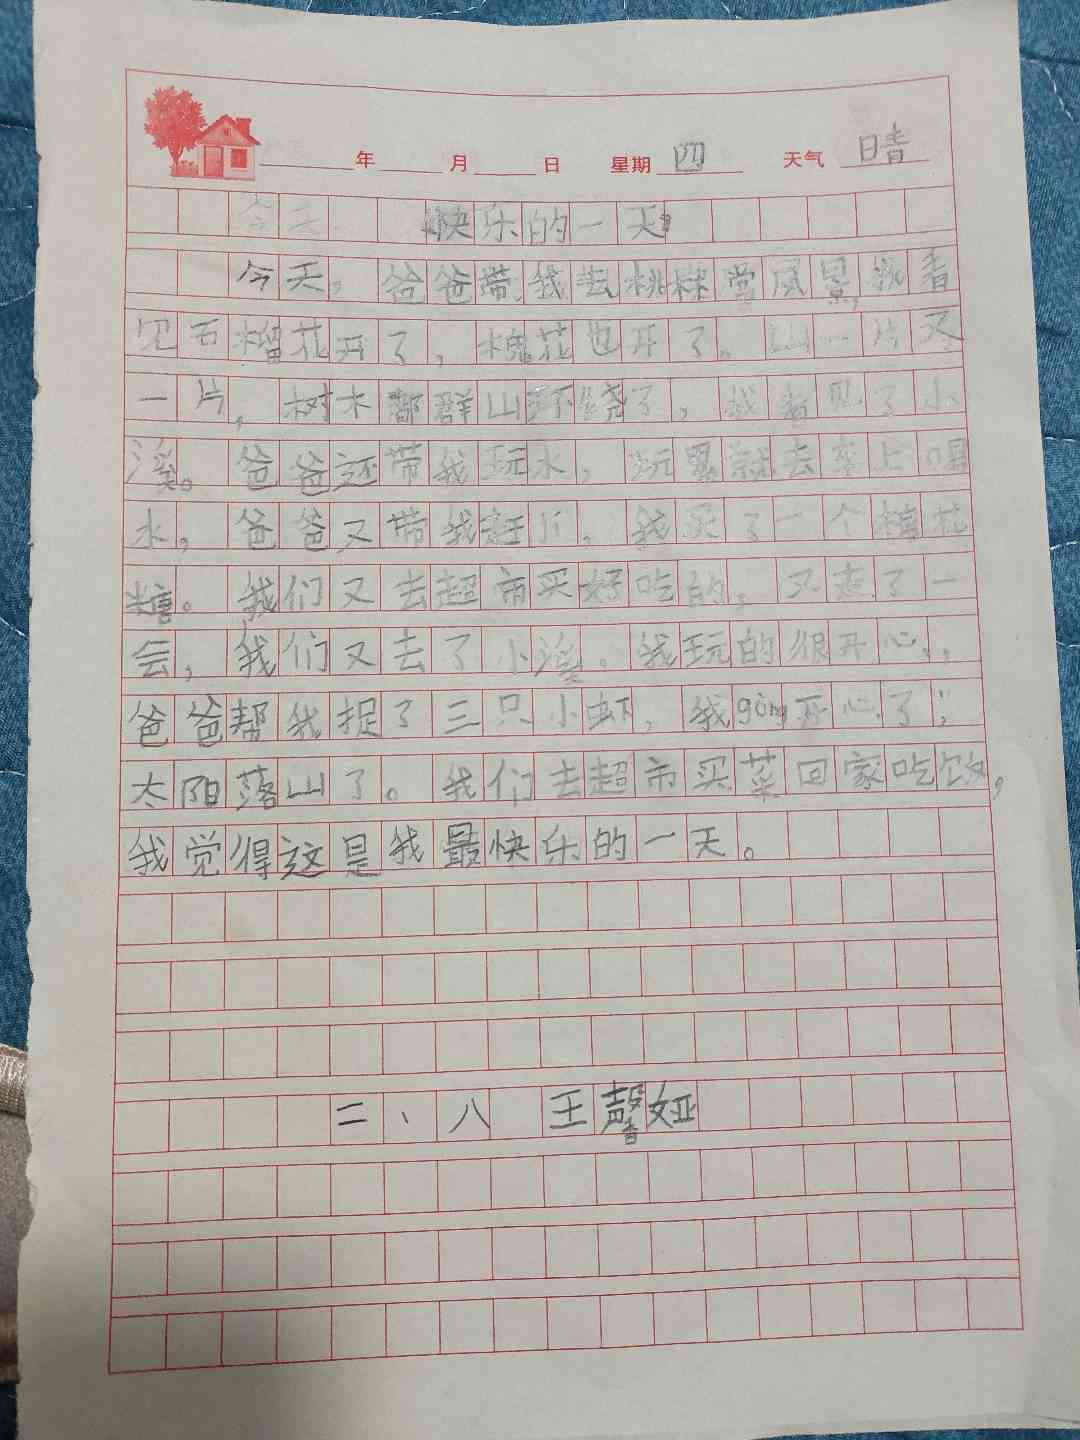 年 月 日 星期 四 天气 晴
快乐的一天
今天，爸爸带我去桃林赏风景，我看
见石榴花开了，槐花也开了。山一片又
一片，树木都群山环绕了，我看见了小
溪。爸爸还带我玩水，玩累就去车上喝
水，爸爸又带我逛街。我买了一个棉花
糖。我们又去超市买好吃的，又走了一
会，我们又去了小溪。我玩的很开心，
爸爸帮我捉了三只小虾，我gèng开心了，
太阳落山了。我们去超市买菜回家吃饭，
我觉得这是我最快乐的一天。
二、八 王馨娅